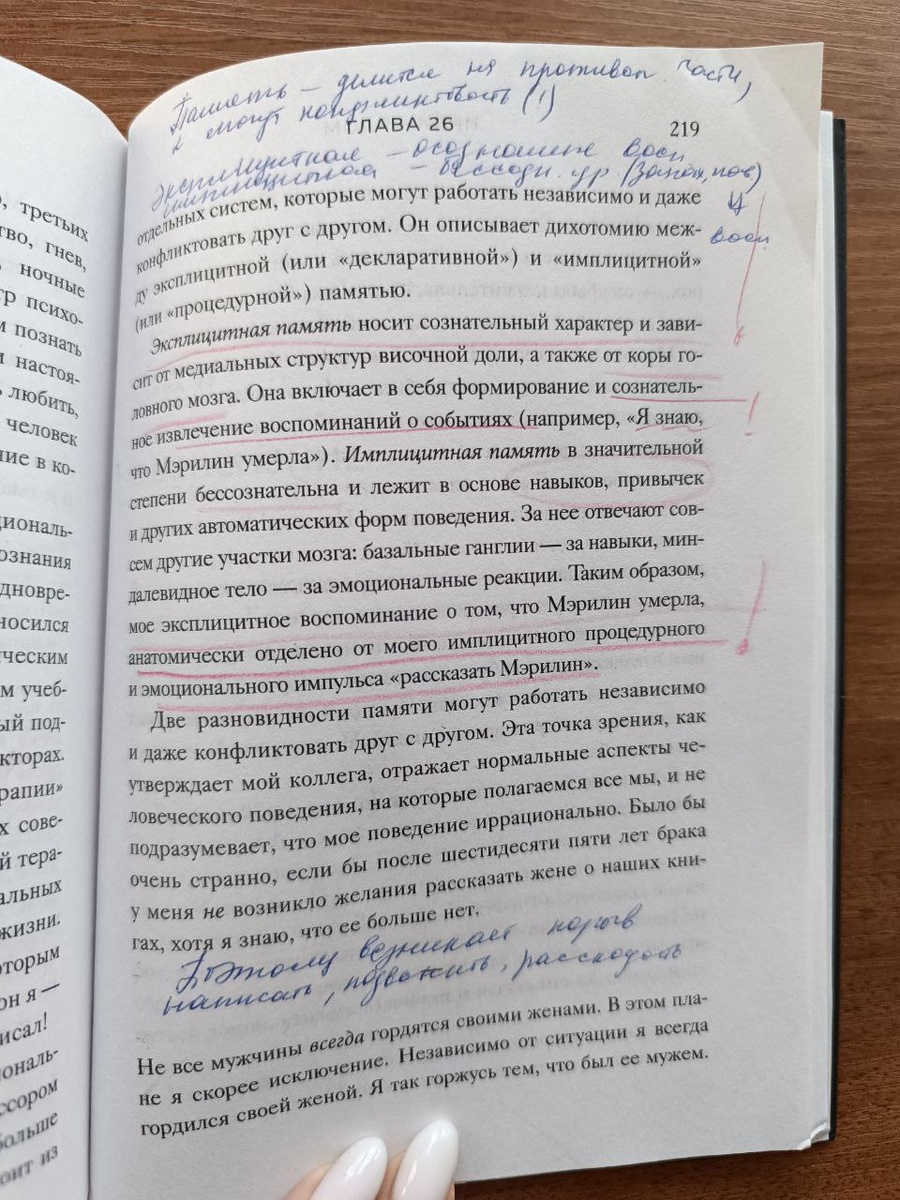 , третьих
тво, гнев,
ночные
тр психо-
м познать
и настоя-
ь любить,
человек
ние в ко-
циональ-
ознания
дновре-
носился
ическим
м учеб-
ый под-
кторах.
рапии»
х сове-
й тера-
альных
жизни.
оторым
он я —
исал!
иональ-
ссором
больше
оит из
Память – делится на противоп. части,
и могут
ГЛАВА 26
219
эксплицитная – осознание восп
имплицитная –
восп
отдельных систем, которые могут работать независимо и даже
конфликтовать друг с другом. Он описывает дихотомию меж-
ду эксплицитной (или «декларативной») и «имплицитной»
(или «процедурной») памятью.
Эксплицитная память носит сознательный характер и зави-
сит от медиальных структур височной доли, а также от коры го-
ловного мозга. Она включает в себя формирование и сознатель-
ное извлечение воспоминаний о событиях (например, «Я знаю,
что Мэрилин умерла»). Имплицитная память в значительной
степени бессознательна и лежит в основе навыков, привычек
и других автоматических форм поведения. За нее отвечают сов-
сем другие участки мозга: базальные ганглии — за навыки, мин-
далевидное тело — за эмоциональные реакции. Таким образом,
мое эксплицитное воспоминание о том, что Мэрилин умерла,
анатомически отделено от моего имплицитного процедурного
и эмоционального импульса «рассказать Мэрилин».
Две разновидности памяти могут работать независимо
и даже конфликтовать друг с другом. Эта точка зрения, как
утверждает мой коллега, отражает нормальные аспекты че-
ловеческого поведения, на которые полагаемся все мы, и не
подразумевает, что мое поведение иррационально. Было бы
очень странно, если бы после шестидесяти пяти лет брака
у меня не возникло желания рассказать жене о наших кни-
гах, хотя я знаю, что ее больше нет.
Поэтому возникает порыв
написать, позвонить, рассказать
Не все мужчины всегда гордятся своими женами. В этом пла-
не я скорее исключение. Независимо от ситуации я всегда
гордился своей женой. Я так горжусь тем, что был ее мужем.